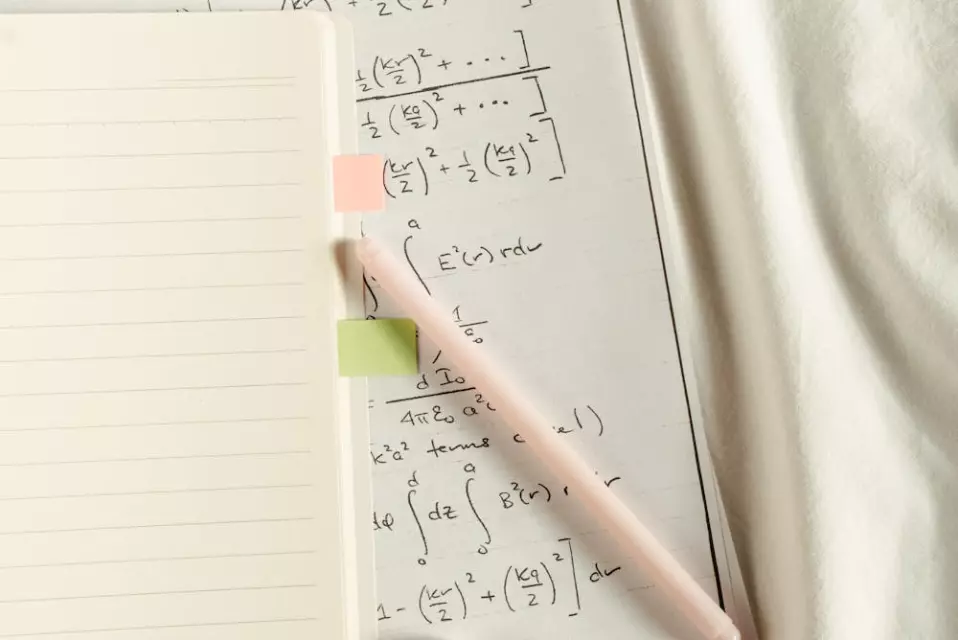 ½(kr/2)² + ...]
½(ka/2)² + ...]
(kr/2)² + ½(ka/2)²]
∫ᵃ E²(r) rdr
I / ε₀
= d I₀ / 4πε₀ a²
k²a² terms
dφ ∫₀ᵈ dz ∫₀ᵃ B²(r)
1 - (kr/2)² + (ka/2)²] dr